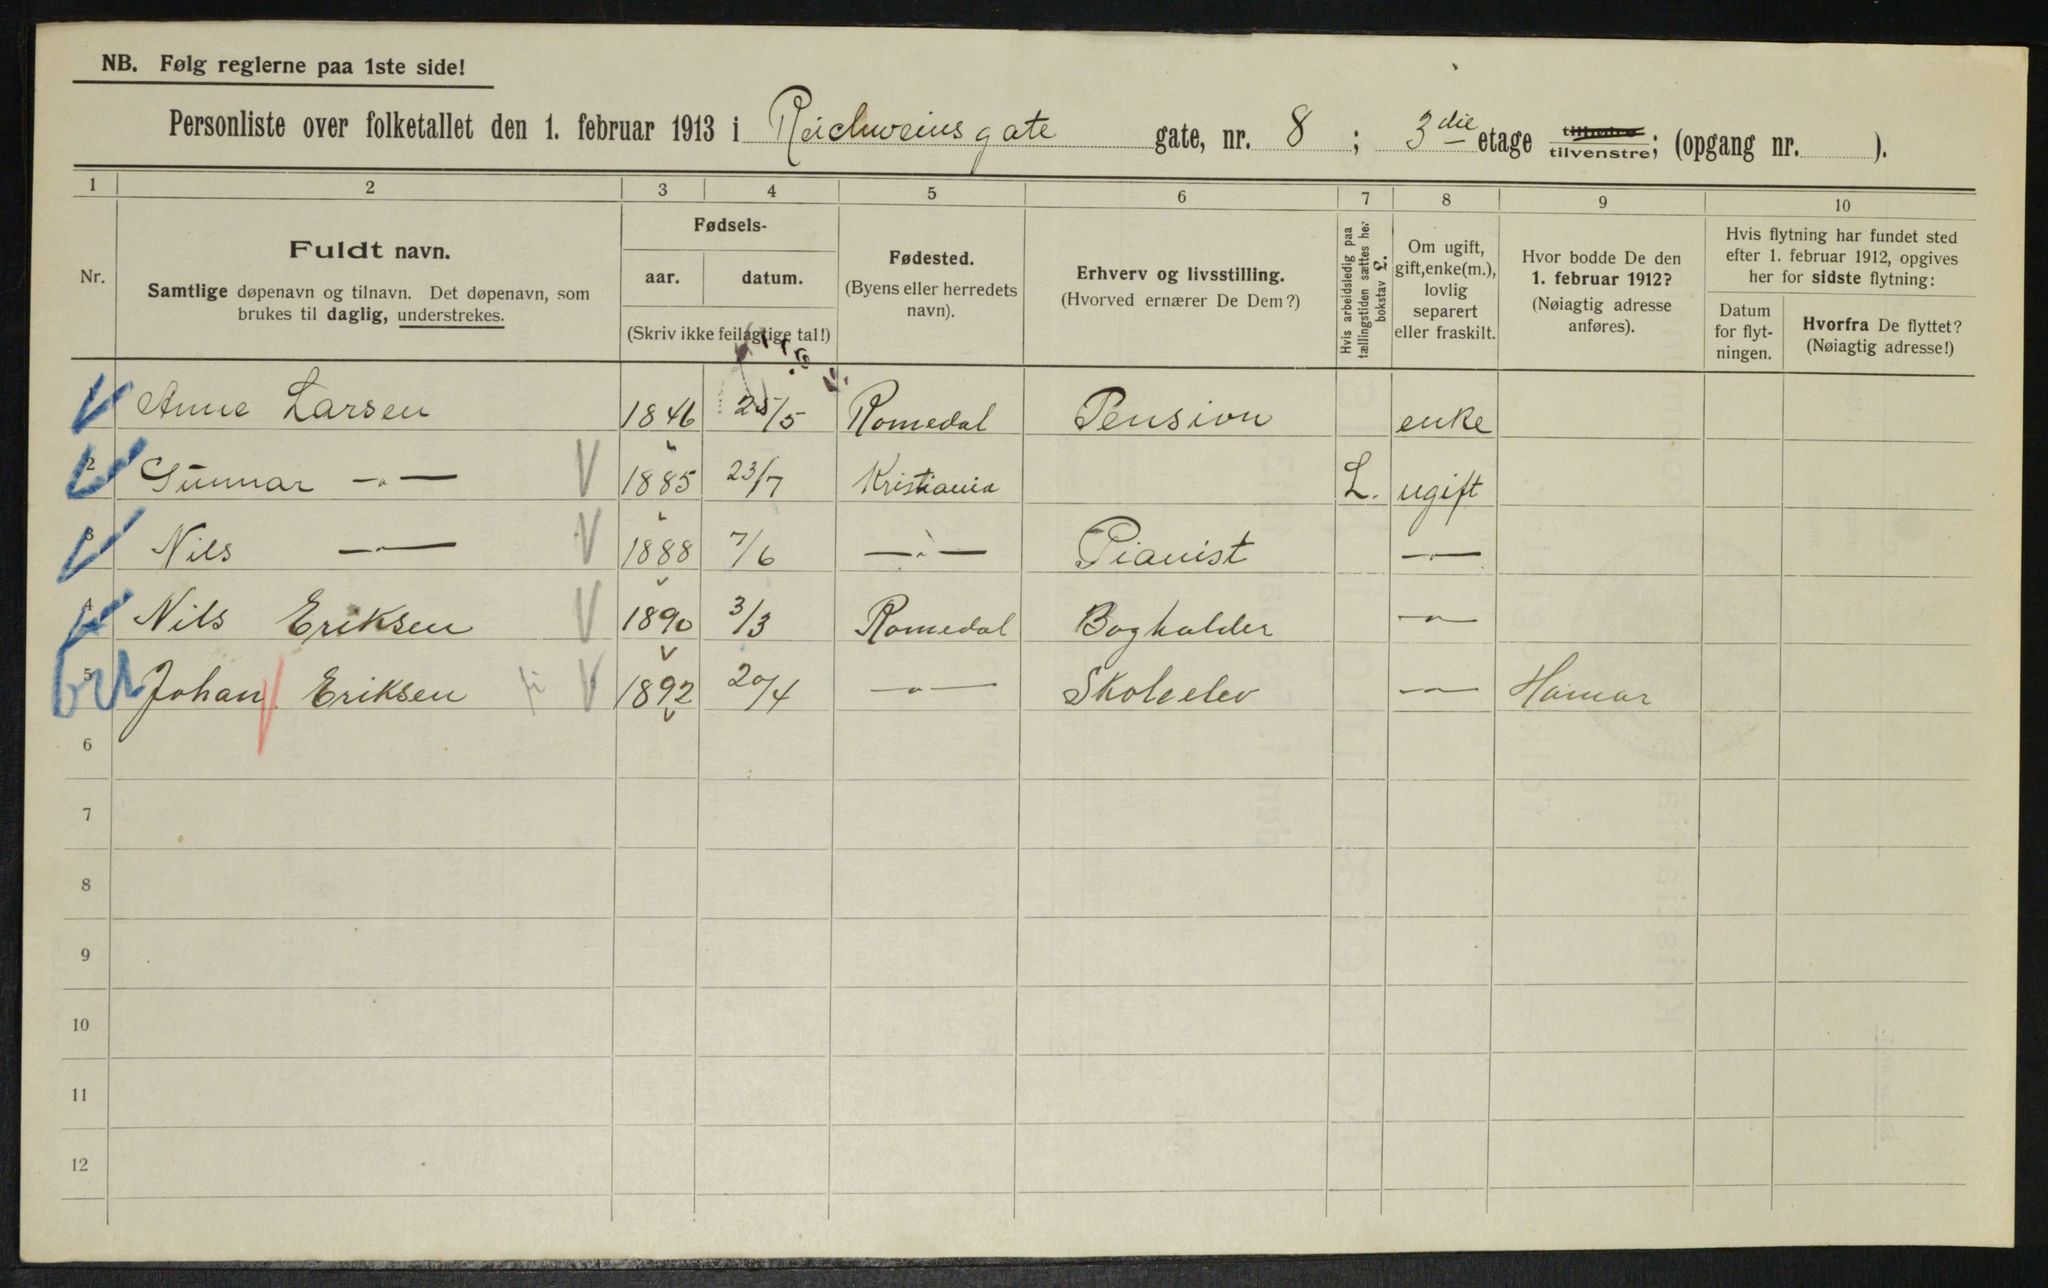 NB. Følg reglerne paa 1ste side!
Personliste over folketallet den 1. februar 1913 i Reichweinsgate gate, nr. 8 ; 3die etage tilhøire tilvenstre; (opgang nr. ).
1 2 3 4 5 6 7 8 9 10
Nr.
Fuldt navn.
Samtlige døpenavn og tilnavn. Det døpenavn, som
brukes til daglig, understrekes.
Fødsels-
aar. datum.
(Skriv ikke feilagtige tal!)
Fødested.
(Byens eller herredets
navn).
Erhverv og livsstilling.
(Hvorved ernærer De Dem?)
Hvis arbeidsledig paa
tællingstiden sættes her
bokstav L.
Om ugift,
gift, enke(m.),
lovlig
separert
eller fraskilt.
Hvor bodde De den
1. februar 1912?
(Nøiagtig adresse
anføres).
Hvis flytning har fundet sted
efter 1. februar 1912, opgives
her for sidste flytning:
Datum
for flyt-
ningen.
Hvorfra De flyttet?
(Nøiagtig adresse!)
1 Anne Larsen 1846 25/5 Romedal Pension enke
2 Gunnar -"- 1885 23/7 Kristiania L. ugift
3 Nils -"- 1888 7/6 -"- Pianist -"-
4 Nils Eriksen 1890 3/3 Romedal Bogholder -"-
5 Johan Eriksen 1892 20/4 -"- Skoleelev -"- Hamar
6
7
8
9
10
11
12